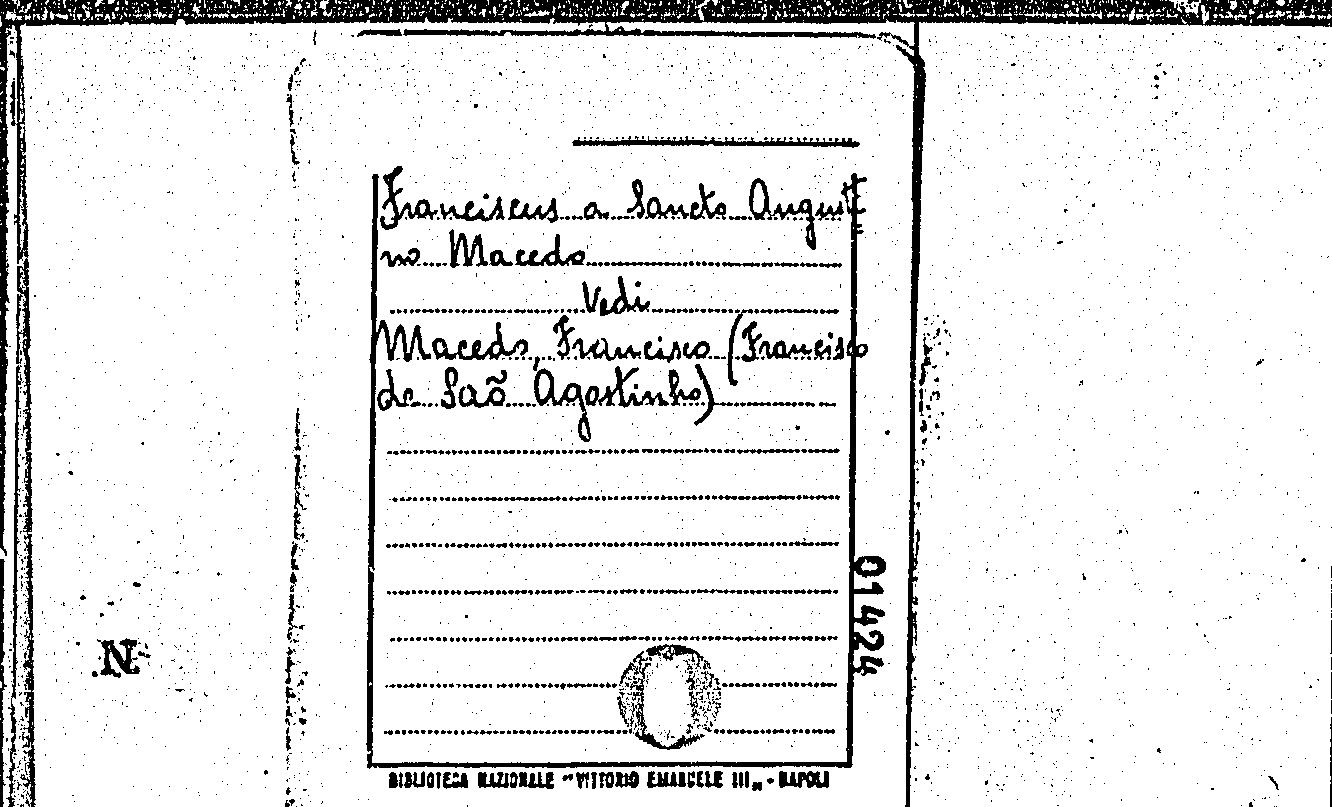 Franciscus a Sancto Augusti=
no Macedo
Vedi
Macedo, Francisco (Francisco
de Saõ Agostinho)
01424
N
BIBLIOTECA NAZIONALE "VITTORIO EMANUELE III„ - NAPOLI